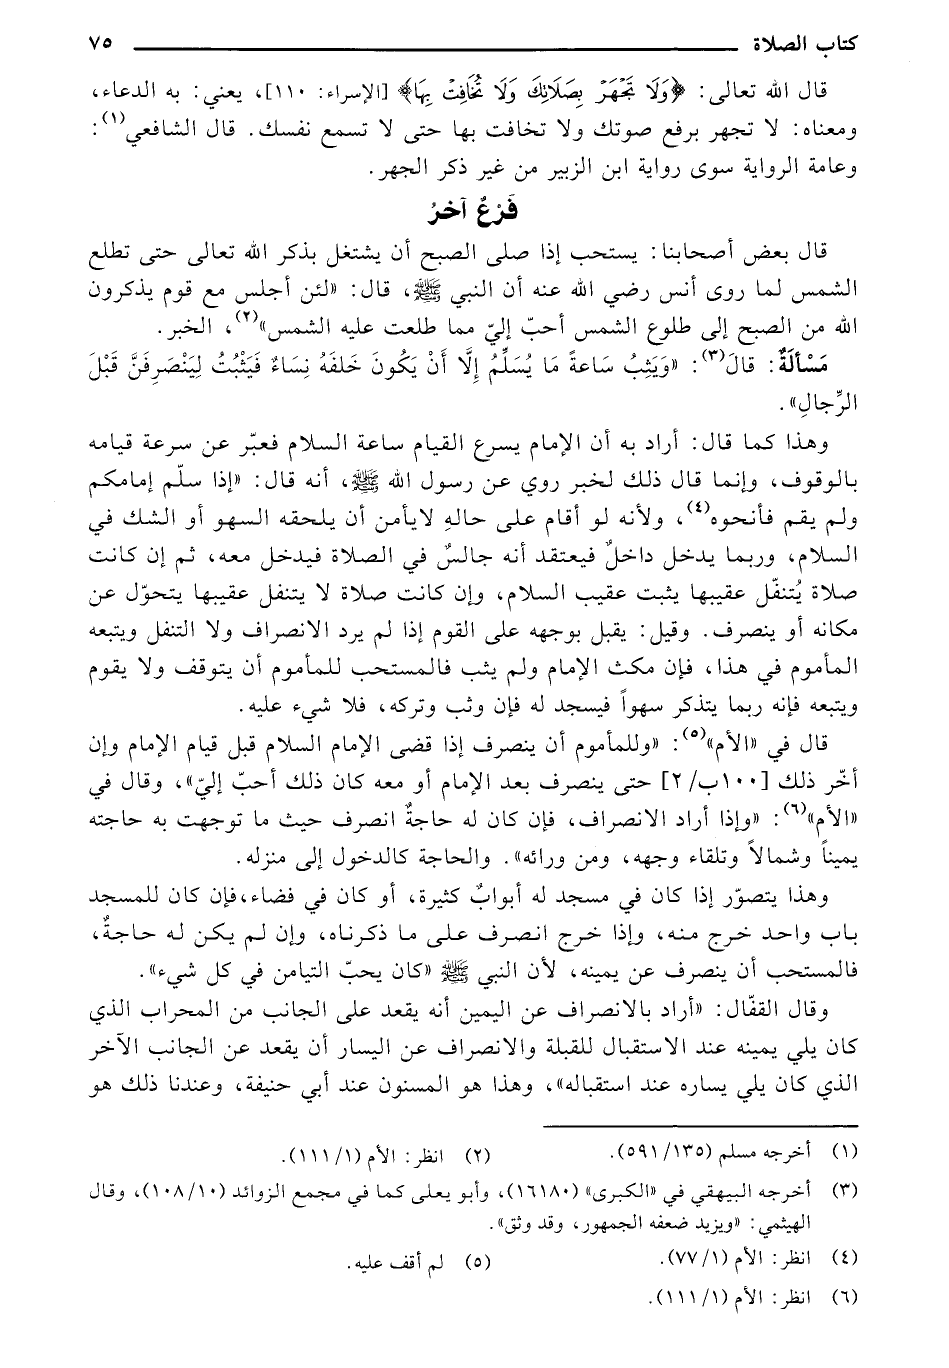 كتاب الصلاة ٧٥
قال الله تعالى: ﴿وَلَا تَجْهَرْ بِصَلَاتِكَ وَلَا تُخَافِتْ بِهَا﴾ [الإسراء: ١١٠]، يعني: به الدعاء،
ومعناه: لا تجهر برفع صوتك ولا تخافت بها حتى لا تسمع نفسك. قال الشافعي(١):
وعامة الرواية سوى رواية ابن الزبير من غير ذكر الجهر.
فَرْعٌ آخرُ
قال بعض أصحابنا: يستحب إذا صلى الصبح أن يشتغل بذكر الله تعالى حتى تطلع
الشمس لما روى أنس رضي الله عنه أن النبي ﷺ، قال: «لئن أجلس مع قوم يذكرون
الله من الصبح إلى طلوع الشمس أحبّ إليّ مما طلعت عليه الشمس»(٢)، الخبر.
مَسْألَةٌ: قالَ(٣): «وَيَثِبُ سَاعةً مَا يُسَلِّمُ إِلَّا أَنْ يَكُونَ خَلفَهُ نِساءٌ فَيَثْبُتُ لِيَنْصَرِفَنَّ قَبْلَ
الرِّجالِ».
وهذا كما قال: أراد به أن الإمام يسرع القيام ساعة السلام فعبّر عن سرعة قيامه
بالوقوف، وإنما قال ذلك لخبر روي عن رسول الله ﷺ، أنه قال: «إذا سلّم إمامكم
ولم يقم فأنحوه(٤)، ولأنه لو أقام على حالهِ لايأمن أن يلحقه السهو أو الشك في
السلام، وربما يدخل داخلٌ فيعتقد أنه جالسٌ في الصلاة فيدخل معه، ثم إن كانت
صلاة يُتنفّل عقيبها يثبت عقيب السلام، وإن كانت صلاة لا يتنفل عقيبها يتحوّل عن
مكانه أو ينصرف. وقيل: يقبل بوجهه على القوم إذا لم يرد الانصراف ولا التنفل ويتبعه
المأموم في هذا، فإن مكث الإمام ولم يثب فالمستحب للمأموم أن يتوقف ولا يقوم
ويتبعه فإنه ربما يتذكر سهواً فيسجد له فإن وثب وتركه، فلا شيء عليه.
قال في «الأم»(٥): «وللمأموم أن ينصرف إذا قضى الإمام السلام قبل قيام الإمام وإن
أخّر ذلك [١٠٠ب/ ٢] حتى ينصرف بعد الإمام أو معه كان ذلك أحبّ إليّ»، وقال في
«الأم»(٦): «وإذا أراد الانصراف، فإن كان له حاجةٌ انصرف حيث ما توجهت به حاجته
يميناً وشمالاً وتلقاء وجهه، ومن ورائه». والحاجة كالدخول إلى منزله.
وهذا يتصوّر إذا كان في مسجد له أبوابٌ كثيرة، أو كان في فضاء،فإن كان للمسجد
باب واحد خرج منه، وإذا خرج انصرف على ما ذكرناه، وإن لم يكن له حاجةٌ،
فالمستحب أن ينصرف عن يمينه، لأن النبي ﷺ «كان يحبّ التيامن في كل شيء».
وقال القفّال: «أراد بالانصراف عن اليمين أنه يقعد على الجانب من المحراب الذي
كان يلي يمينه عند الاستقبال للقبلة والانصراف عن اليسار أن يقعد عن الجانب الآخر
الذي كان يلي يساره عند استقباله»، وهذا هو المسنون عند أبي حنيفة، وعندنا ذلك هو
(١) أخرجه مسلم (٥٩١/١٣٥). (٢) انظر: الأم (١/ ١١١).
(٣) أخرجه البيهقي في «الكبرى» (١٦١٨٠)، وأبو يعلى كما في مجمع الزوائد (١٠/ ١٠٨)، وقال
الهيثمي: «ويزيد ضعفه الجمهور، وقد وثق».
(٤) انظر: الأم (١/ ٧٧). (٥) لم أقف عليه.
(٦) انظر: الأم (١/ ١١١).